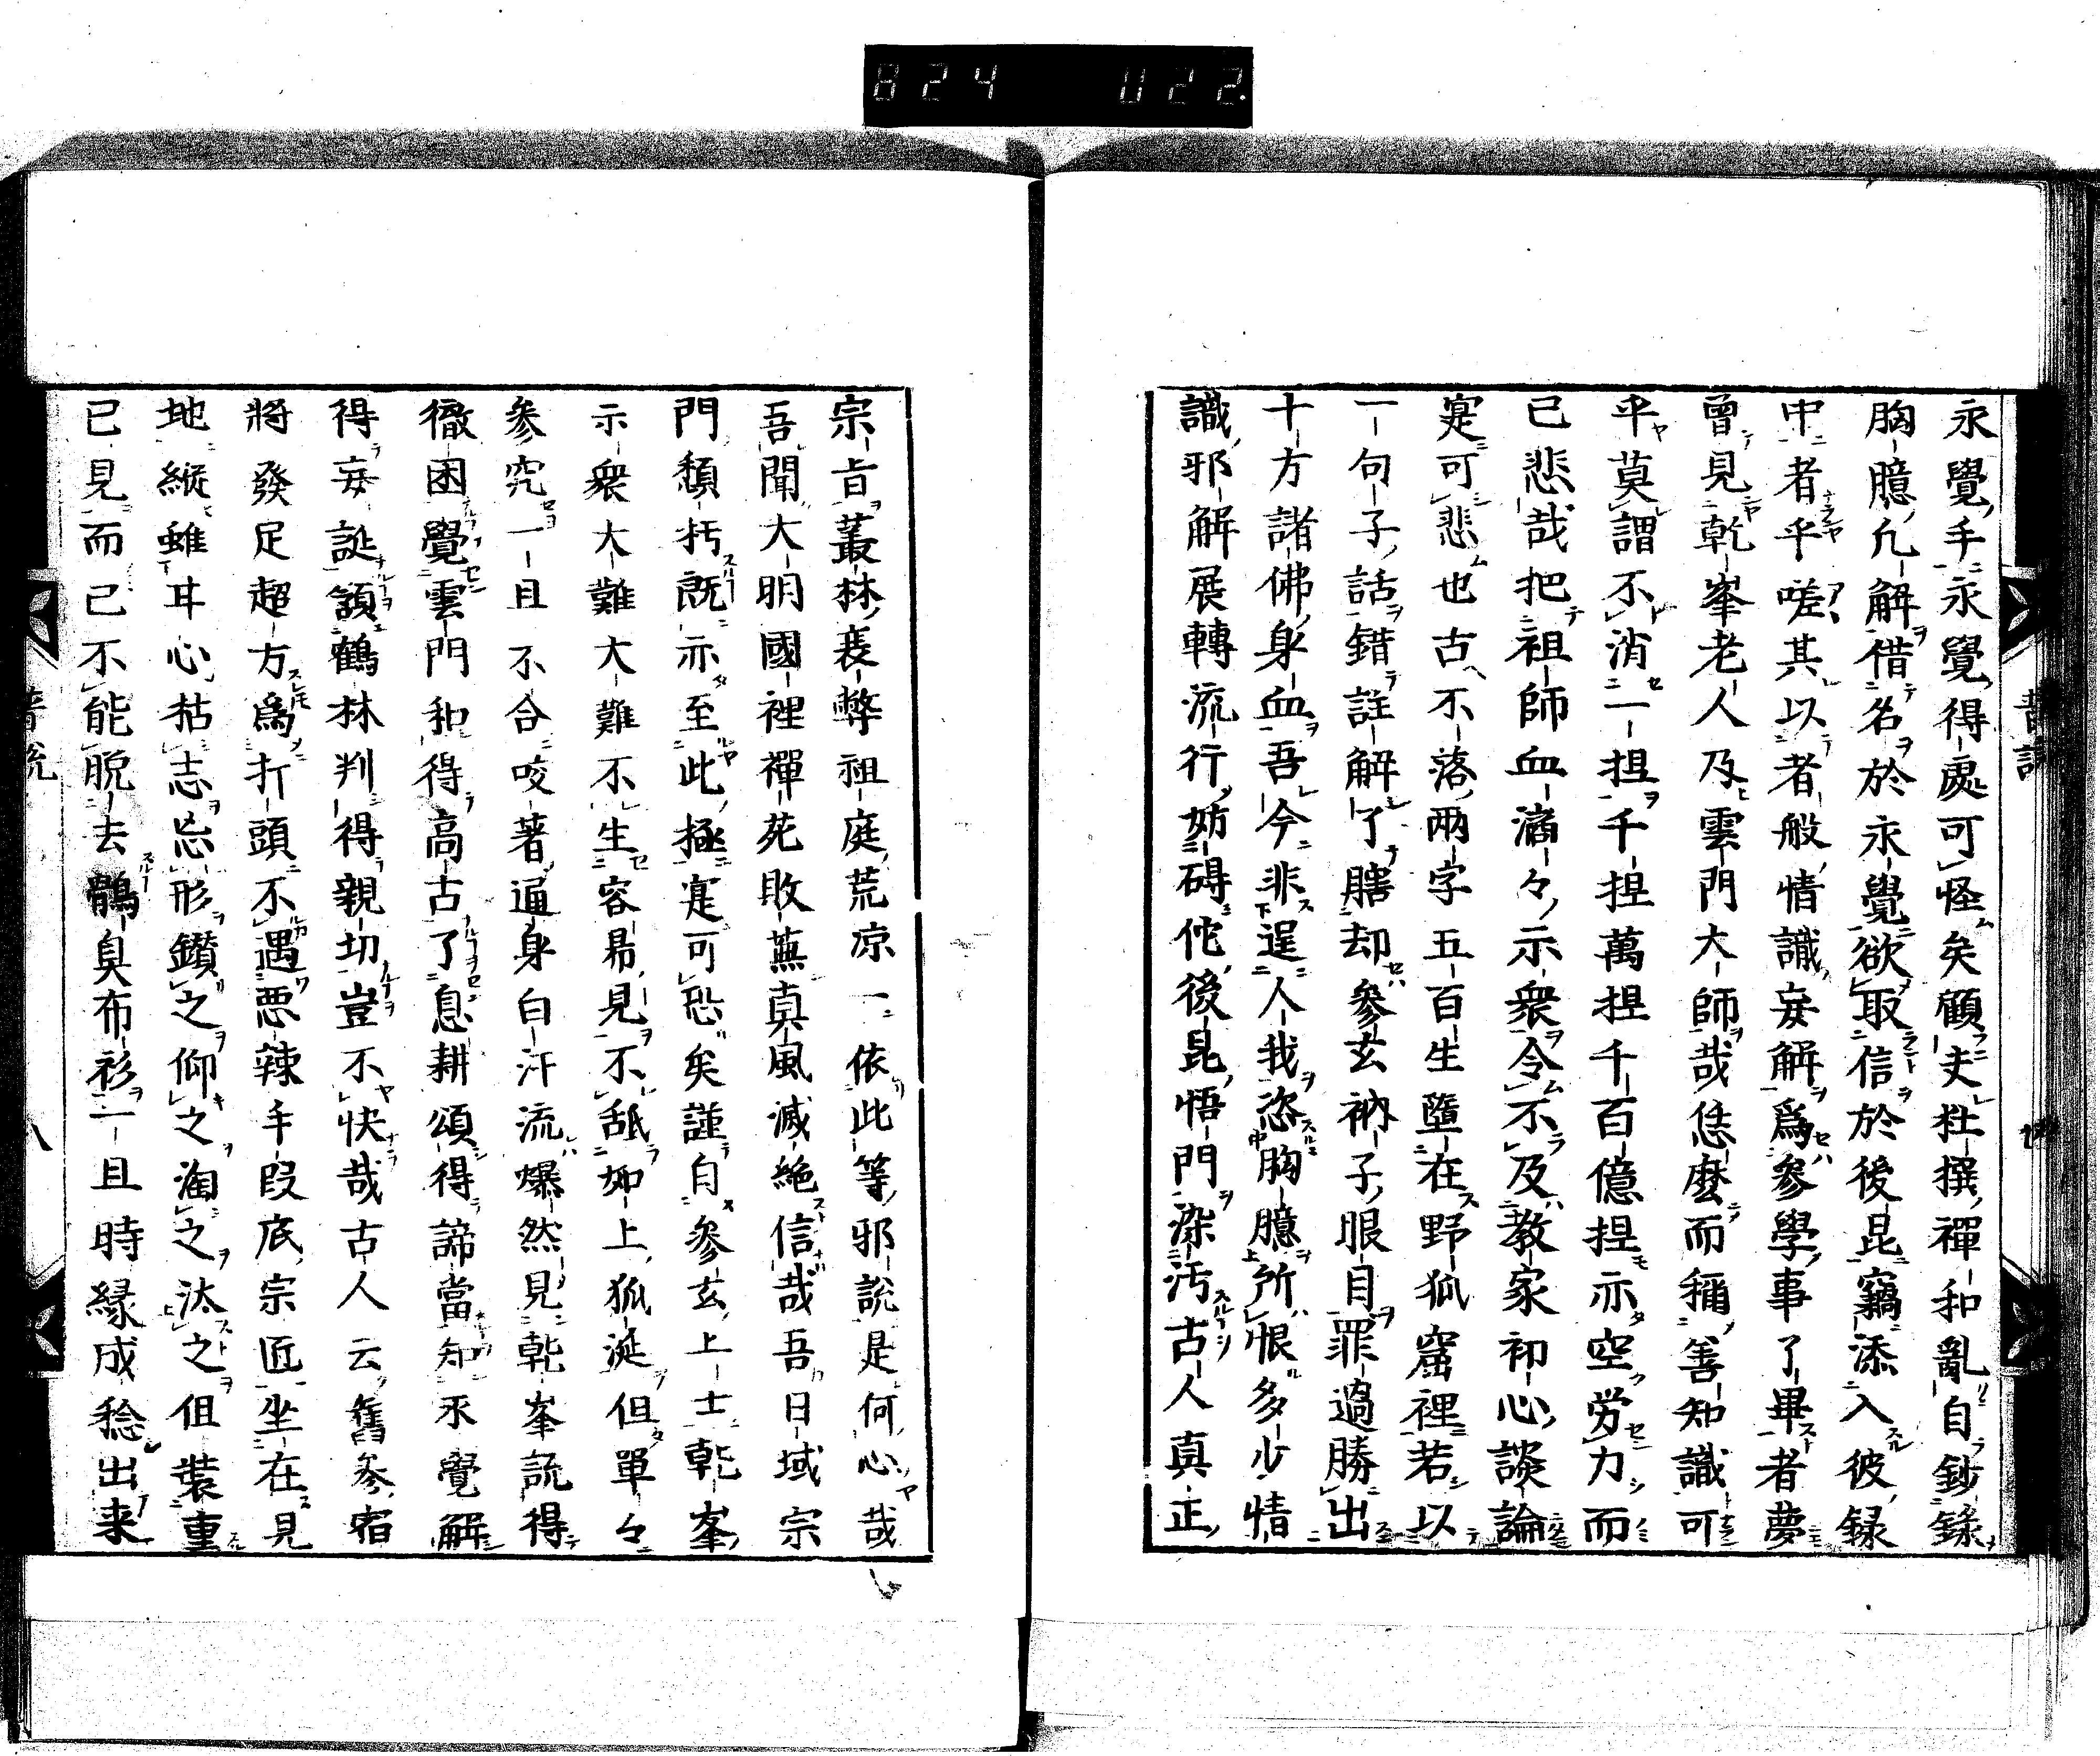 824 022
永覺手永覺得處可怪矣顧夫杜撰禪和亂自鈔錄
胸臆凡解借名於永覺欲取信於後昆竊添入彼録
中者乎嗟其以者般情識妄解爲參學事了畢者夢
曾見乾峯老人及雲門大師哉恁麼而稱善知識可
乎莫謂不消一揑千揑萬揑千百億揑亦空労力而
已悲哉把祖師血滴々示衆令不及教家初心談論
寔可悲也古不落兩字五百生墮在野狐窟裡若以
一句子話錯註解了瞎却參玄衲子眼目罪過勝出
十方諸佛身血吾今非逞人我恣胸臆所恨多少情
識邪解展轉流行妨碍佗後昆悟門染汚古人真正
宗旨叢林衰弊祖庭荒凉一依此等邪說是何心哉
吾聞大明國裡禪苑敗蕪真風滅絶信哉吾日域宗
門頽朽既亦至此極寔可恐矣謹白參玄上士乾峯
示衆大難大難不生容易見不舐如上狐涎但單々
參究一旦不合咬著遍身白汗流爆然見乾峯說得
徹困覺雲門和得高古了息耕頌得諦當知永覺解
得妄誕頷鶴林判得親切豈不快哉古人云舊參宿
將發足超方爲打頭不遇惡辣手段底宗匠坐在見
地縱雖耳心枯志忘形鑽之仰之淘之汰之伹裝重
已見而已不能脫去鶻臭布衫一旦時緣成稔出来
普說
八